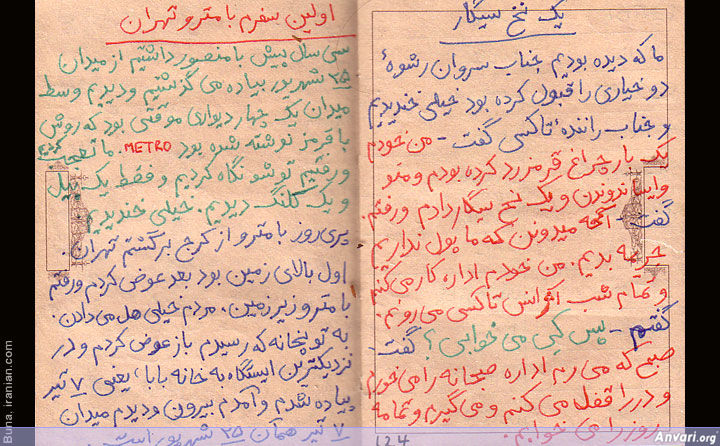 یک نخ سیگار
ما که دیده بودیم جناب سروان رشوهٔ
دو خیاری را قبول کرده بود خیلی خندیدیم
و جناب رانندهٔ تاکسی گفت - من خودم
یک بار چراغ قرمز رد کرده بودم و منو
وایسوندوندن و یک نخ سیگار دادم و رفتم.
گفت - آخه میدونن که ما پول نداریم
جریمه بدیم. من خودم اداره کار می‌کنم
و تمام شب آژانس تاکسی می‌رونم.
گفتم - پس کی می‌خوابی؟ گفت -
صبح که می‌رم اداره صبحانه را می‌خورم
و در را قفل می‌کنم و می‌گیرم و تمامه
روز را می‌خوابم.
۱۲۴
اولین سفرم با مترو تهران
سی سال پیش با منصور داشتیم از میدان
۲۵ شهریور پیاده می‌گذشتیم و دیدیم وسط
میدان یک چهار دیواری موقتی بود که روش
با قرمز نوشته شده بود METRO. ما تعجب کردیم
و رفتیم توشو نگاه کردیم و فقط یک بیل
و یک کلنگ دیدیم. خیلی خندیدیم.
پری‌روز با مترو از کرج برگشتم تهران.
اول بالای زمین بود بعد عوض کردم و رفتم
با مترو زیر زمین. مردم خیلی هل می‌دادن.
به توپخانه که رسیدم باز عوض کردم و در
نزدیکترین ایستگاه به خانه بابا، یعنی ۷ تیر
پیاده شدم و آمدم بیرون و دیدم میدان
۷ تیر همان ۲۵ شهریور است.
Buna, iranian.com
Anvari.org